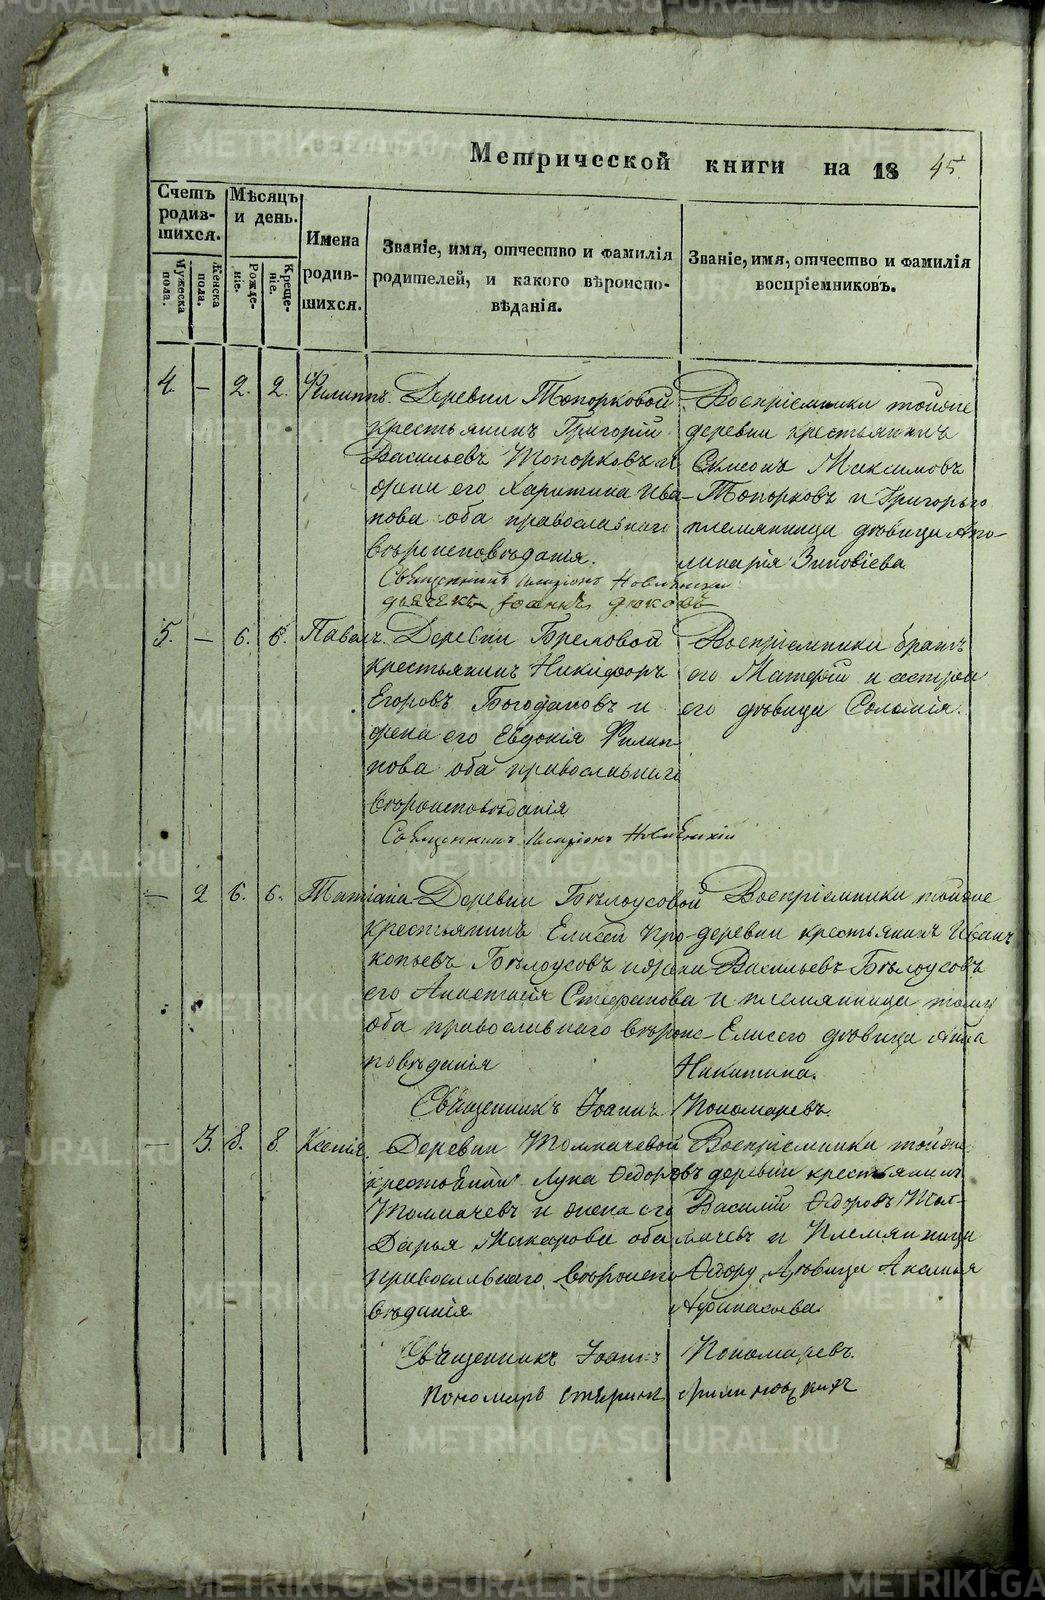 Метрической книги на 1845
Счетъ родив-шихся.
Мѣсяцъ и день.
Имена родив-шихся.
Званіе, имя, отчество и фамилія родителей, и какого вѣроиспо-вѣданія.
Званіе, имя, отчество и фамилія воспріемниковъ.
Мужеска пола.
Женска пола.
Рожде-ніе.
Креще-ніе.
4. — 2. 2. Филиппъ.
Деревни Топорковой
крестьянинъ Григорій
Васильевъ Топорковъ и
жена его Харитина Ива-
нова оба православнаго
вѣроисповѣданія.
Воспріемники тойже
деревни крестьянинъ
Симеонъ Максимовъ
Топорковъ и Григорьго
племянница дѣвица Апо-
линарія Зиновіева
Священникъ Иларіонъ
дьячекъ Іоаннъ
5. — 6. 6. Павелъ.
Деревни
крестьянинъ Никифоръ
Егоровъ Богодановъ и
жена его Евдокія Филип-
пова оба православнаго
вѣроисповѣданія
Воспріемники братъ
его Матфій и сестра
его дѣвица Соломія.
Священникъ Иларіонъ
— 2 6. 6. Татіана
Деревни Бѣлоусовой
крестьянинъ Елисей Про-
копьевъ Бѣлоусовъ и жена
его Анастасія Стефанова
оба православнаго вѣроис-
повѣданія
Воспріемники тойже
деревни крестьянинъ Иванъ
Васильевъ Бѣлоусовъ
и племянница тому
Елисею дѣвица Анна
Никитина.
Священникъ Іоаннъ Пономаревъ.
— 3. 8. 8. Ксенія.
Деревни Толмачевой
крестьянинъ Лука Ѳедоровъ
Толмачевъ и жена его
Дарья Макарова оба
православнаго вѣроиспо
вѣданія
Воспріемники тойже
деревни крестьянинъ
Василій Ѳедоровъ Тол-
мачевъ и Племянница
Ѳедору Дѣвица Акилина
Афанасьева.
Священникъ Іоаннъ Пономаревъ.
Пономарь
METRIKI.GASO-URAL.RU